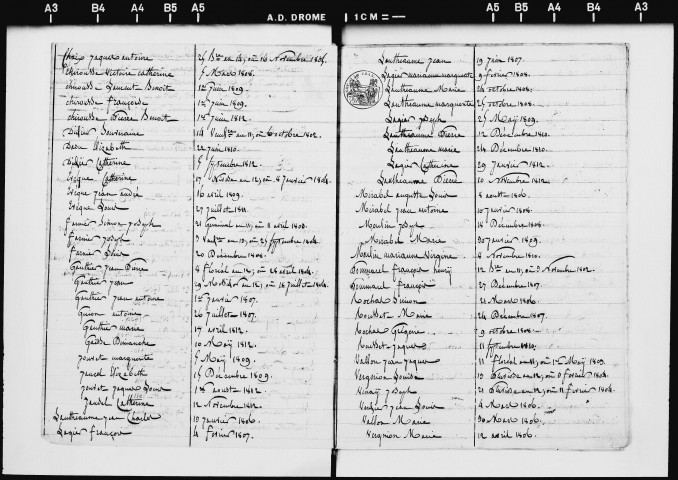 A3 B4 A4 B5 A5
A.D. DROME
1 CM =
A5 B5 A4 B4 A3
jaques antoine
Chirousse Victoire Catherine 5 Mars 1808.
Chirousse Laurent Benoit 1er juin 1809.
Chirousse françoise 1er juin 1809.
Chirousse Pierre Benoit 1er juin 1812.
Didier 14 Vend.re an 11, ou 6 octobre 1802.
Elizabeth 22 juin 1810.
Didier Catherine 5 7tembre 1812.
Catherine 17 Nivose an 12, ou 8 janvier 1804.
jean andré 16 avril 1809.
Louis 27 juillet 1811.
joseph 21 Germinal an 11, ou 11 avril 1803.
joseph 3 Vend.re an 13, ou 25 7tembre 1804.
20 Décembre 1808.
Gauthier jean Pierre 8 Floréal an 12, ou 28 avril 1804.
Gauthier jean 29 Messidor an 12, ou 18 juillet 1804.
Gauthier jean antoine 1er janvier 1807.
Guion antoine 26 juillet 1807.
Gauthier marie 17 avril 1812.
Dimanche 10 Maij 1812.
marguerite 5 Maij 1809.
Elizabeth 15 Décembre 1809.
jaques Louis 1er aoust 1812.
Catherine 12 Novembre 1812.
Lantheaume jean Charles 19 janvier 1806.
Lagier françois 4 février 1807.
Lantheaume jean 19 juin 1807.
Lagier marianne marguerite 9 février 1808.
Lantheaume Marie 24 octobre 1808.
Lantheaume marguerite 25 octobre 1808.
Lagier joseph 25 Maij 1809.
Lantheaume Pierre 12 Décembre 1810.
Lantheaume marie 24 Décembre 1810.
Lagier Catherine 29 janvier 1812.
Lantheaume Pierre 10 Novembre 1812.
Mirabel auguste Louis 8 aoust 1806.
Mirabel jean antoine 10 février 1808.
Moulin joseph 18 Décembre 1808.
Mirabel Marie 30 janvier 1809.
Moulin marianne Virginie 4 Novembre 1810.
françois henry 12 B.re an 11, ou 3 Novembre 1802.
françois 27 Décembre 1807.
Rochas Simon 21 Mars 1806.
Rousset Marie 24 Décembre 1807.
Rochas Grégoire 9 octobre 1808.
Rousset jaques 11 7tembre 1810.
Vallon jean jaques 11 Floréal an 11, ou 1er Maij 1803.
Vergnion Louise 19 Pluviose an 12, ou 9 février 1804.
joseph 21 Pluviose an 12, ou 11 février 1804.
jean Louis 4 Mars 1806.
Vallon Marie 30 Mars 1806.
Vergnion Marie 12 avril 1806.